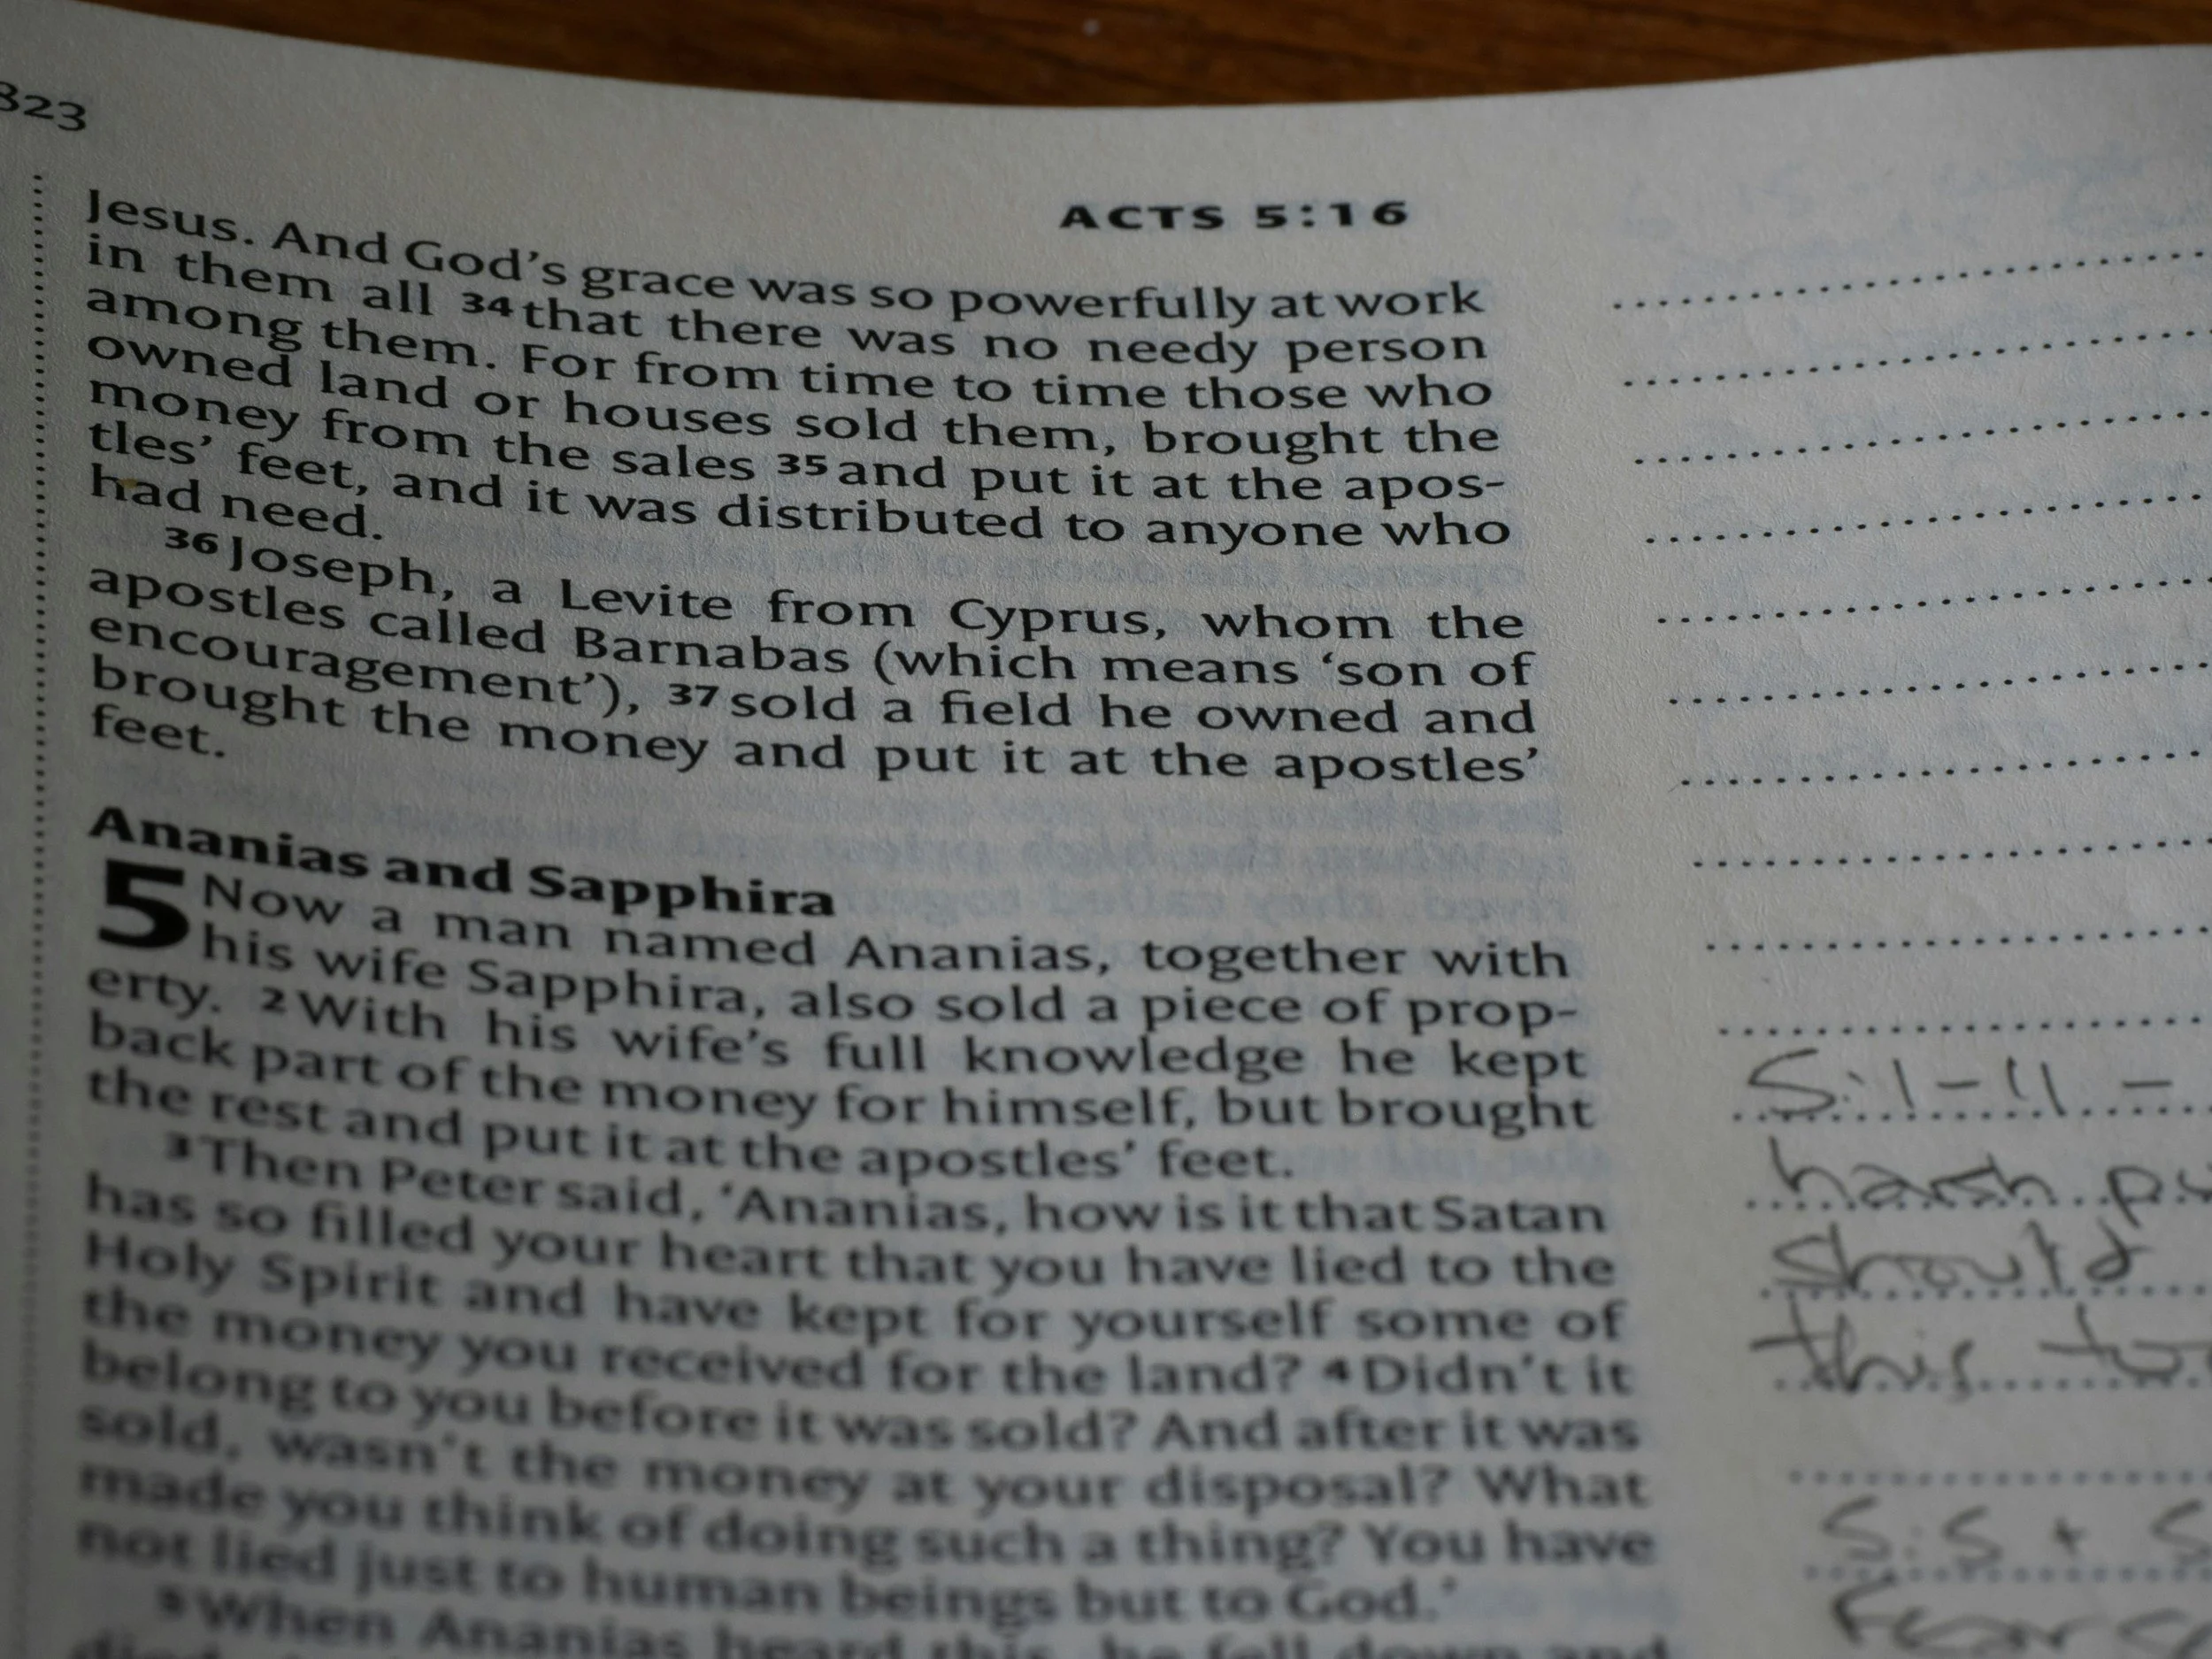 823
ACTS 5:16
Jesus. And God’s grace was so powerfully at work
in them all 34 that there was no needy person
among them. For from time to time those who
owned land or houses sold them, brought the
money from the sales 35 and put it at the apos-
tles’ feet, and it was distributed to anyone who
had need.
36 Joseph, a Levite from Cyprus, whom the
apostles called Barnabas (which means ‘son of
encouragement’), 37 sold a field he owned and
brought the money and put it at the apostles’
feet.
Ananias and Sapphira
5 Now a man named Ananias, together with
his wife Sapphira, also sold a piece of prop-
erty. 2 With his wife’s full knowledge he kept
back part of the money for himself, but brought
the rest and put it at the apostles’ feet.
3 Then Peter said, ‘Ananias, how is it that Satan
has so filled your heart that you have lied to the
Holy Spirit and have kept for yourself some of
the money you received for the land? 4 Didn’t it
belong to you before it was sold? And after it was
sold, wasn’t the money at your disposal? What
made you think of doing such a thing? You have
not lied just to human beings but to God.’
5 When Ananias heard this, he fell down and
5:1-11 -
harsh
should
this
5:5 +